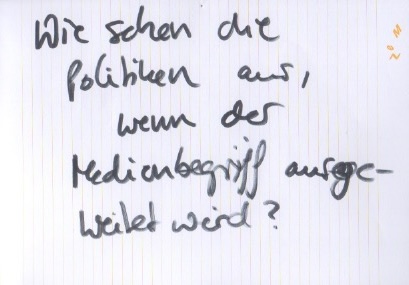 Wie sehen die
Politiken aus,
wenn der
Medienbegriff ausge-
weitet wird?